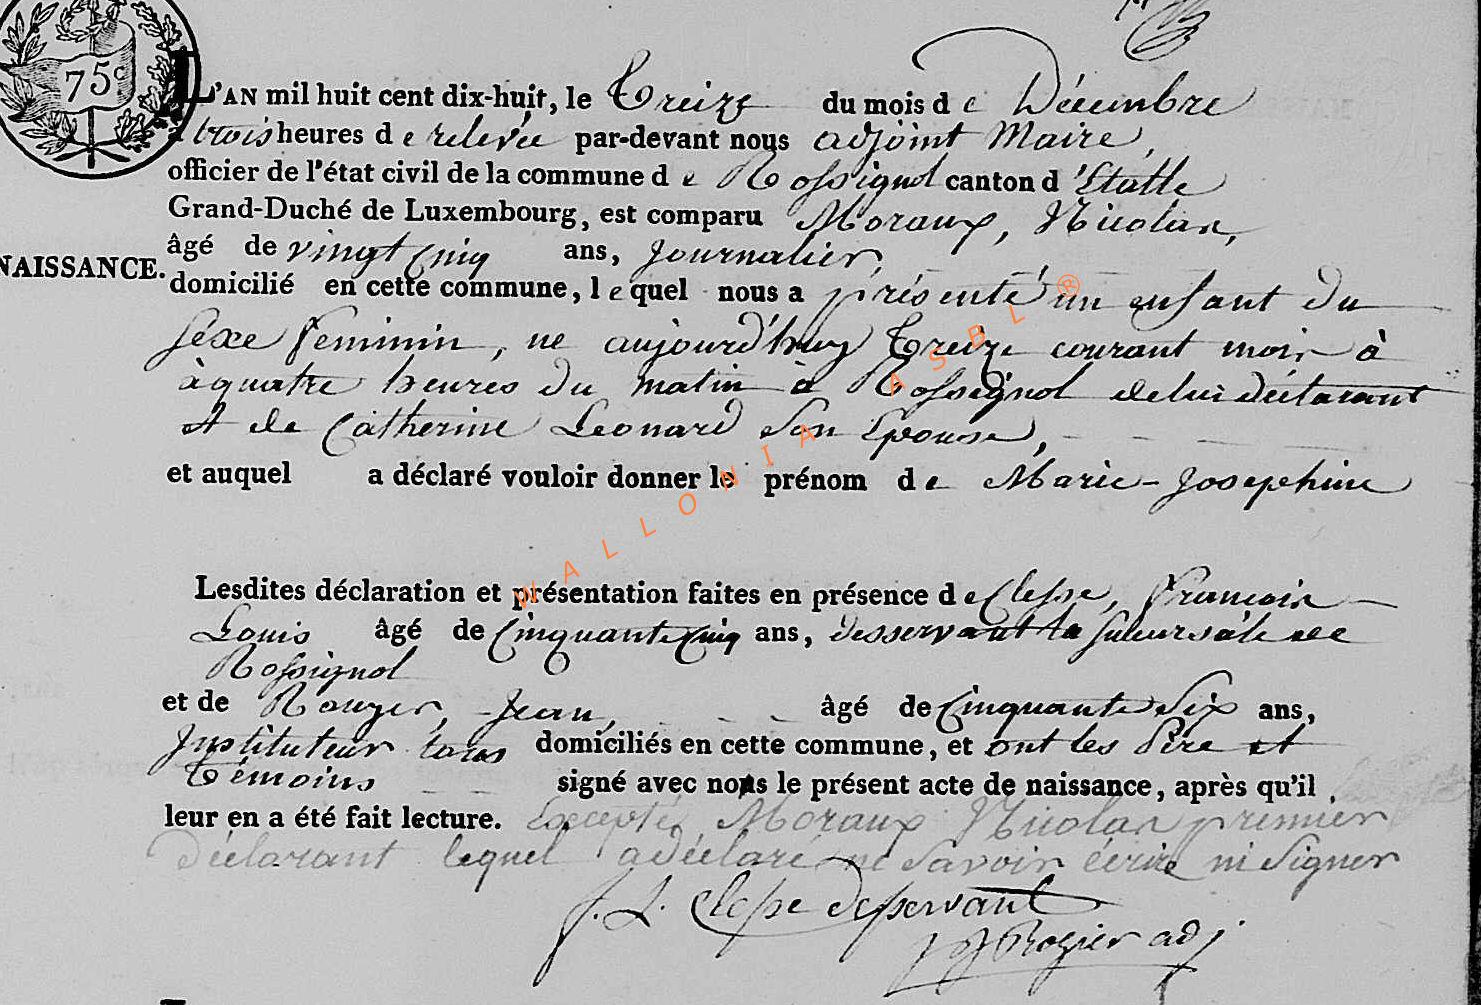 75c
L'AN mil huit cent dix-huit, le Treize du mois de Décembre
à trois heures de relevée par-devant nous adjoint Maire,
officier de l'état civil de la commune de Rossignol canton d'Etalle
Grand-Duché de Luxembourg, est comparu Moraux, Nicolas,
âgé de vingt cinq ans, journalier,
NAISSANCE.
domicilié en cette commune, lequel nous a présenté un enfant du
sexe feminin, ne aujourd'huy Treize courant mois à
à quatre heures du matin à Rossignol de lui déclarant
et de Catherine Leonard Son Epouse,
et auquel a déclaré vouloir donner le prénom de Marie-Josephine
Lesdites déclaration et présentation faites en présence de Clesse, François
Louis âgé de Cinquante Cinq ans, desservant la succursale de
Rossignol
et de Rouger, Jean, âgé de Cinquante Six ans,
Instituteur tous domiciliés en cette commune, et ont les Père et
Témoins signé avec nous le présent acte de naissance, après qu'il
leur en a été fait lecture. Excepté Moraux Nicolas premier
déclarant lequel a déclaré ne savoir écrire ni Signer
f. L. Clesse desservant
Rozier adj
WALLONIA ASBL ®